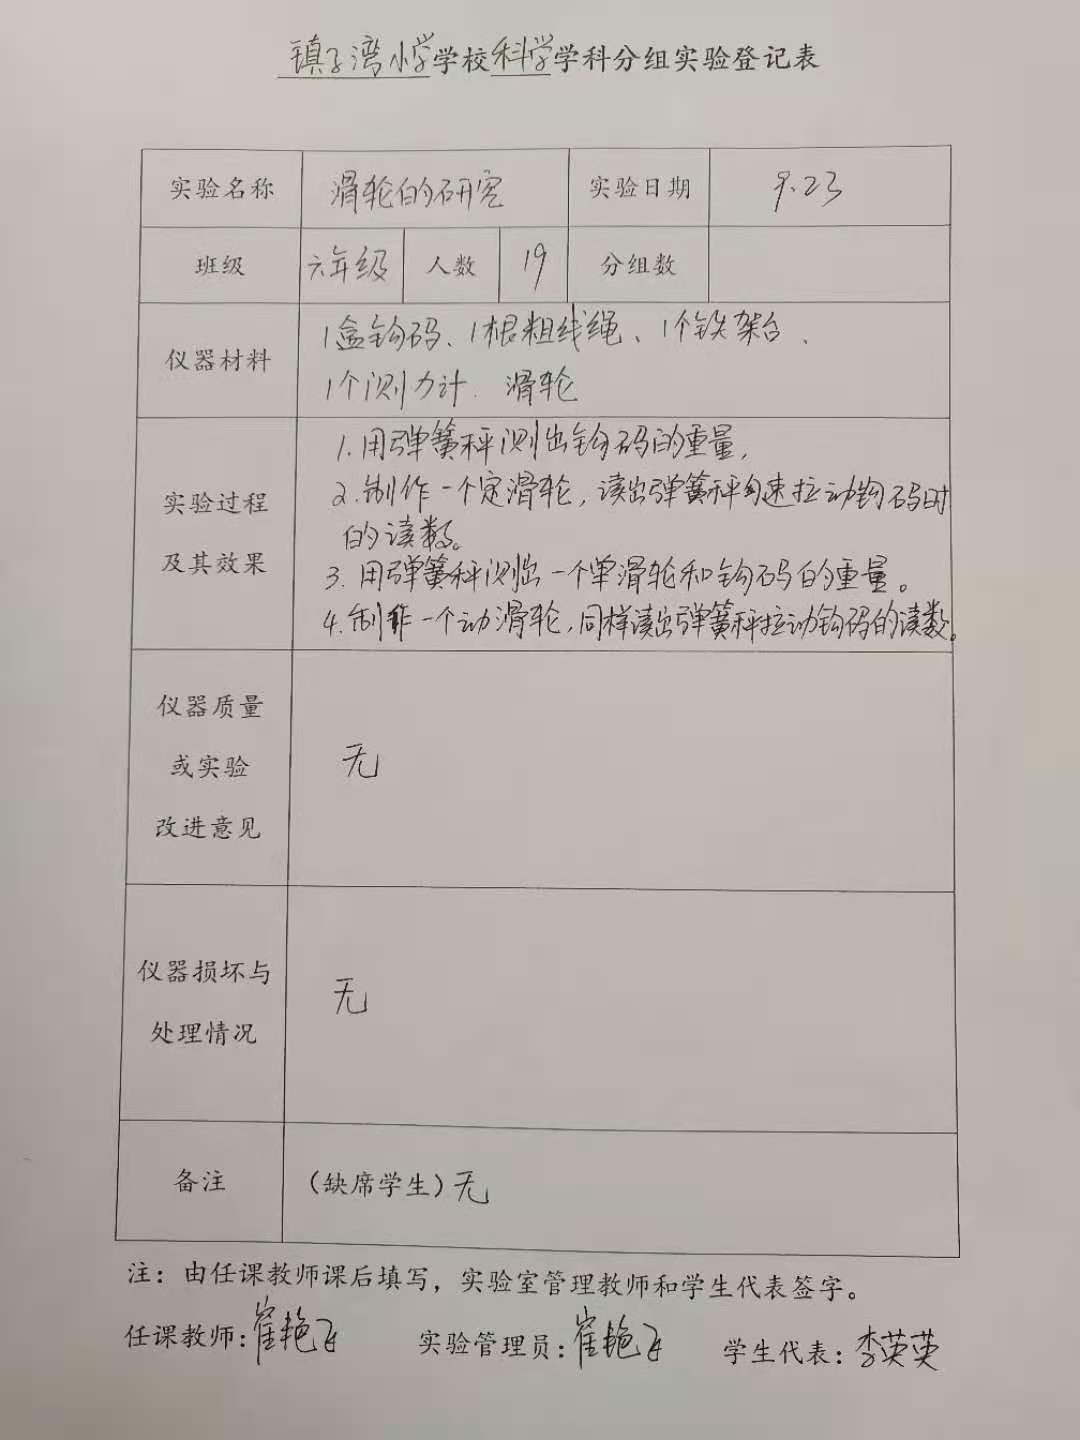 镇子湾小学学校科学学科分组实验登记表
实验名称 滑轮的研究 实验日期 9.23
班级 六年级 人数 19 分组数
仪器材料
1盒钩码、1根粗线绳、1个铁架台、
1个测力计、滑轮
实验过程
及其效果
1.用弹簧秤测出钩码的重量,
2.制作一个定滑轮,读出弹簧秤匀速拉动钩码时
的读数。
3.用弹簧秤测出一个单滑轮和钩码的重量。
4.制作一个动滑轮,同样读出弹簧秤拉动钩码的读数。
仪器质量
或实验
改进意见
无
仪器损坏与
处理情况
无
备注 (缺席学生)无
注:由任课教师课后填写,实验室管理教师和学生代表签字。
任课教师:崔艳飞 实验管理员:崔艳飞 学生代表:李英英